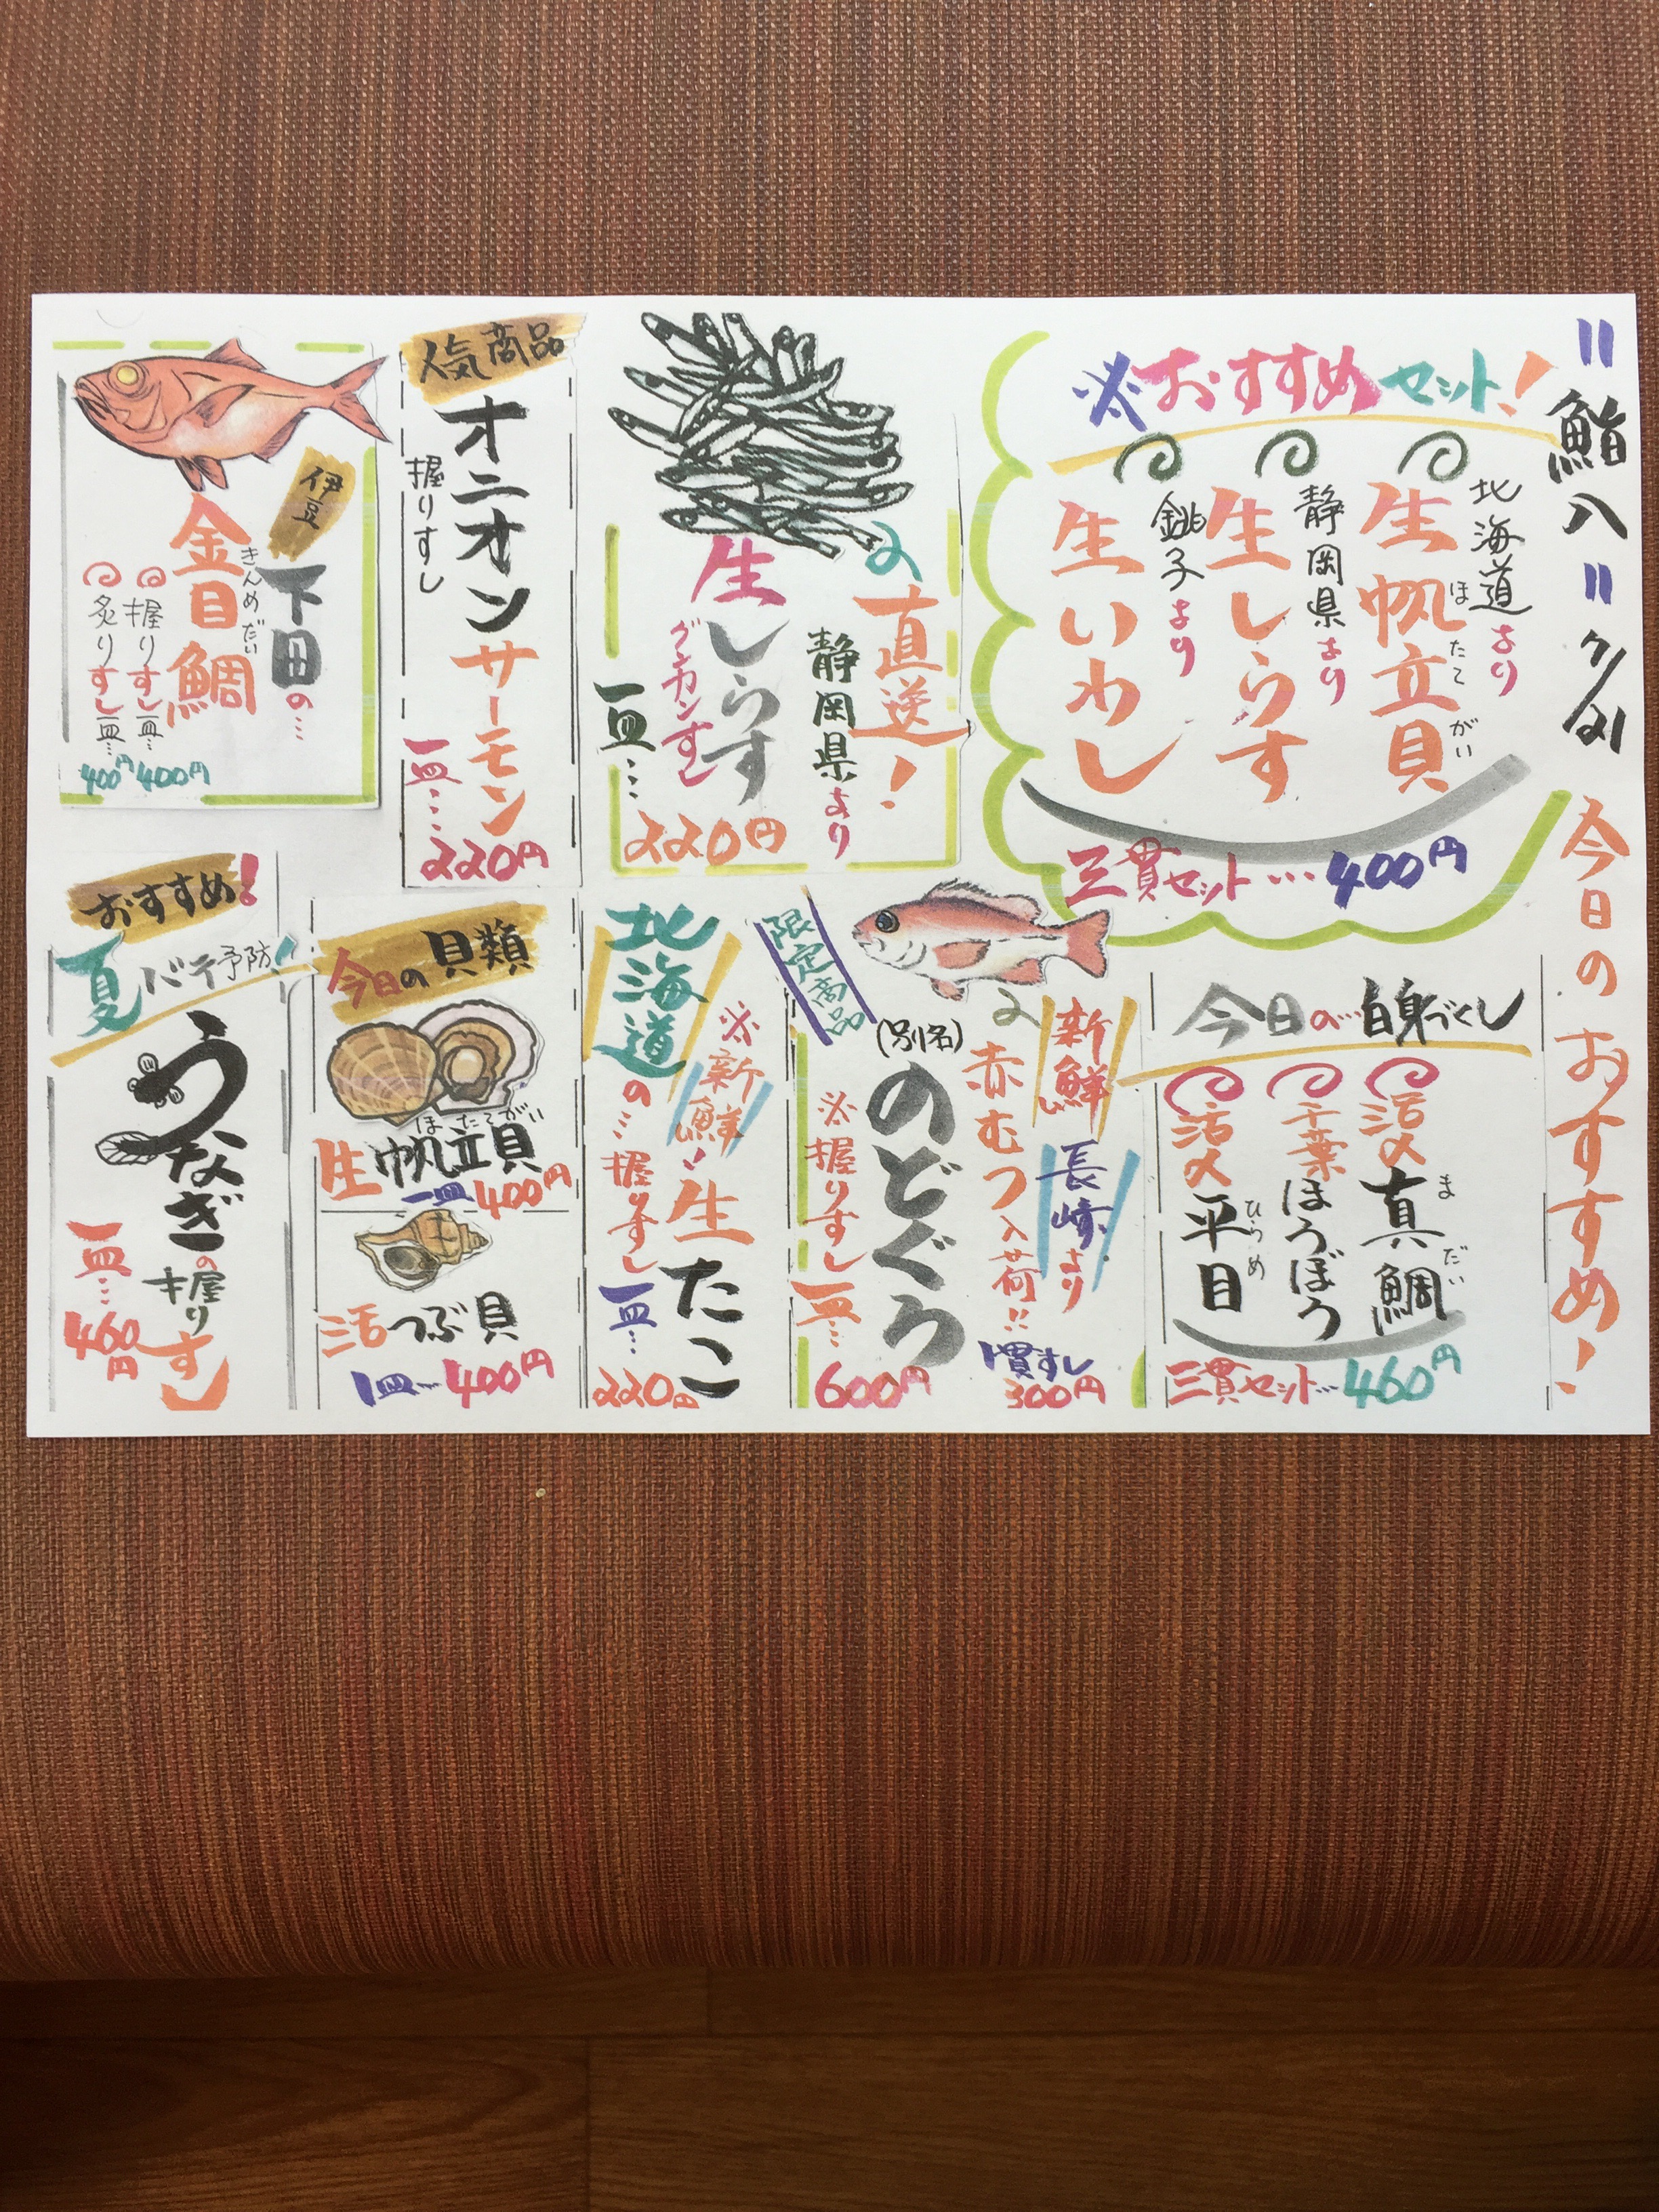 〃鮨八〃
今日のおすすめ！
※おすすめセット！
北海道より
生帆立貝
ほたてがい
静岡県より
生しらす
銚子より
生いわし
三貫セット…400円
直送！
静岡県より
生しらす
グンカンすし
一皿…
220円
人気商品
オニオンサーモン
握りすし
一皿…
220円
伊豆
下田の…
金目鯛
きんめだい
握りすし一皿…400円
炙りすし一皿…400円
今日の…白身づくし
活〆真鯛
まだい
千葉ほうぼう
活〆平目
ひらめ
三貫セット…460円
限定商品
新鮮
長崎より
赤むつ入荷!!
(別名)
のどぐろ
※握りすし一皿…
600円
1貫すし
300円
北海道の…
※新鮮！
生たこ
握りすし
一皿…
220円
今日の貝類
ほたてがい
生帆立貝
一皿400円
活つぶ貝
1皿…400円
おすすめ！
夏バテ予防！
うなぎの握りすし
一皿…
460円